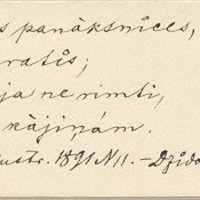 s panāksnieces,
ratis;
ja ne rimti,
kājiņām.
ustr. 1891 N11. – Dzied